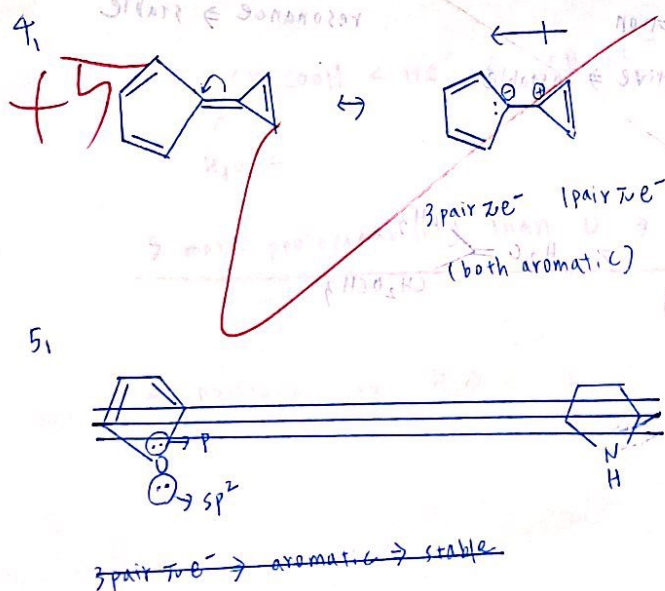 4,
+5
↔
⊖ ⊕
3 pair πe⁻ 1 pair πe⁻
(both aromatic)
5,
→ P
O
→ sp²
N
H
3 pair πe⁻ → aromatic → stable